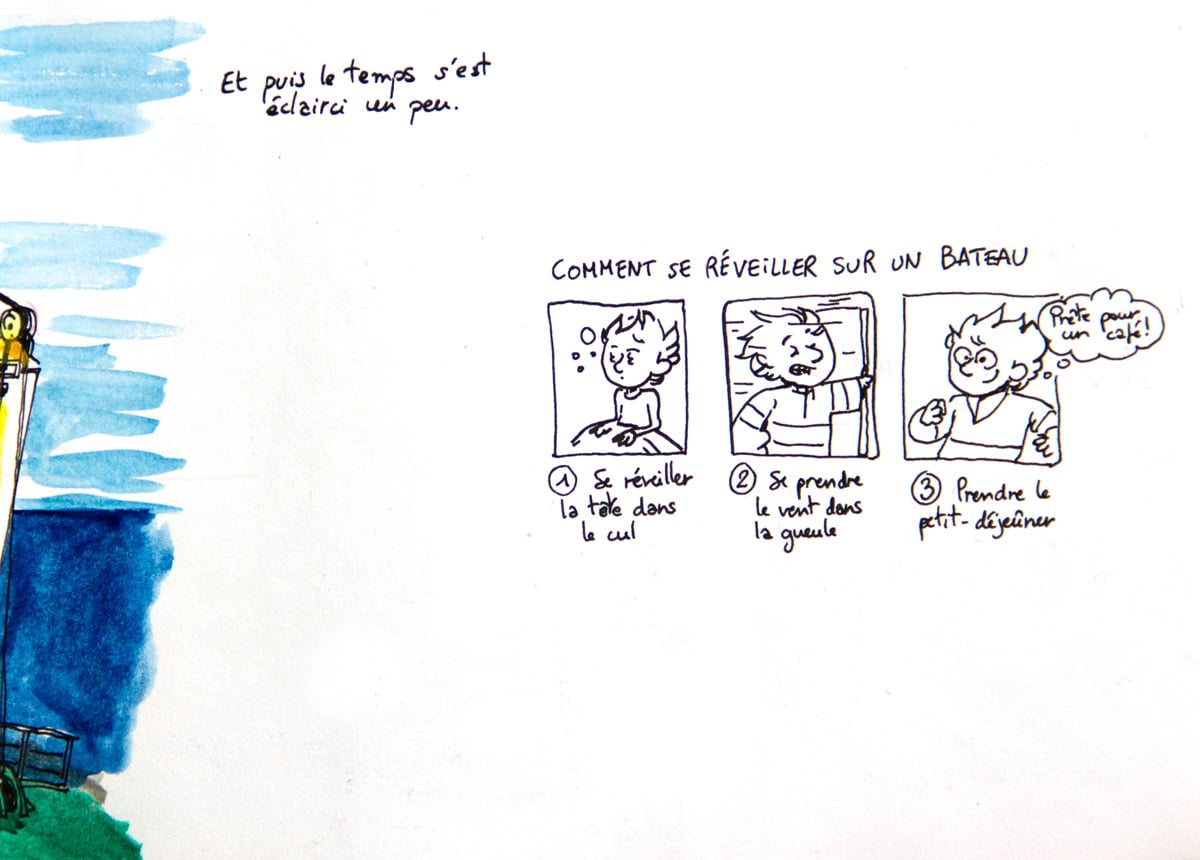 Et puis le temps s'est
éclairci un peu.
COMMENT SE RÉVEILLER SUR UN BATEAU
Prête pour
un café!
1 Se réveiller
la tête dans
le cul
2 Se prendre
le vent dans
la gueule
3 Prendre le
petit-déjeûner